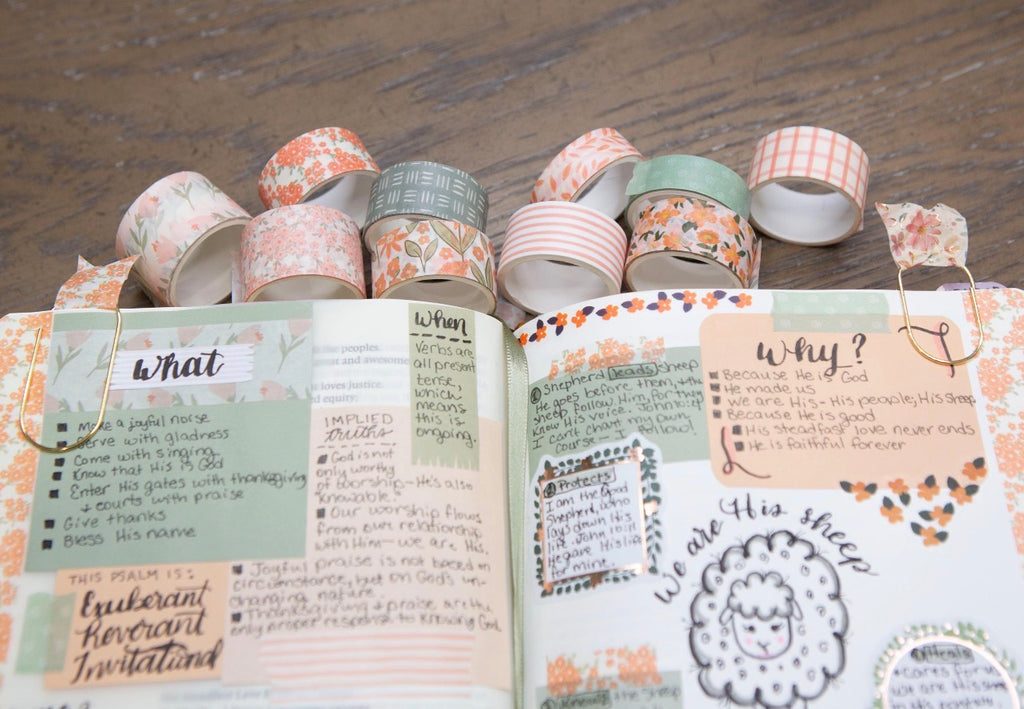 What
Make a joyful noise
Serve with gladness
Come with singing
Know that He is God
Enter His gates with thanksgiving
+ courts with praise
Give thanks
Bless His name
THIS PSALM IS:
Exuberant
Reverant
Invitational
the peoples,
and awesome
loves justice.
equity.
IMPLIED
truths
God is not
only worthy
of worship—He's also
"knowable."
Our worship flows
from our relationship
with Him—we are His.
Joyful praise is not based on
circumstance, but on God's un-
changing nature.
Thanksgiving + praise are the
only proper response to knowing God
When
Verbs are
all present
tense,
which
means
this is
ongoing.
shepherd leads sheep
He goes before them, + the
sheep follow Him, for they
know His voice. John 10:4
I can't chart my own
course— I follow!
② Protects
I am the Good
Shepherd, who
lays down His
life. John 10:11
He gave His life
for mine.
the sheep
Why?
Because He is God
He made us
We are His - His people, His sheep
Because He is good
His steadfast love never ends
He is faithful forever
We are His sheep
cares for
we are His